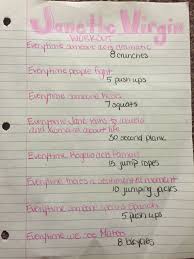 Jane the Virgin
workout
Everytime someone acts dramatic
8 crunches
Everytime people fight
5 push ups
Everytime someone kisses
7 squats
Everytime Jane talks to
and about life
30 second plank
Everytime Rogelio acts famous
15 jump ropes
Everytime there's a sentimental moment
10 jumping jacks
Everytime someone speaks Spanish
5 push ups
Everytime we see Mateo
8 bicycles